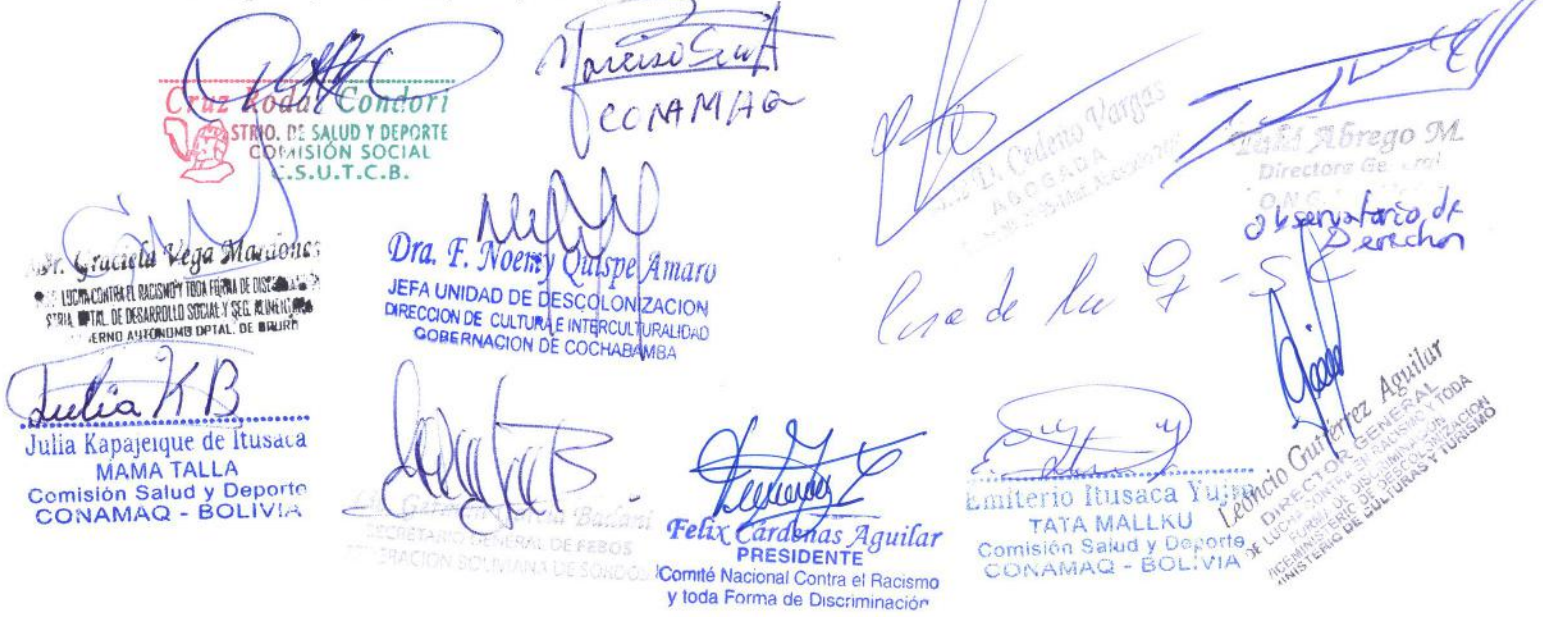 Cruz Rodal Condori
STRIO. DE SALUD Y DEPORTE
COMISIÓN SOCIAL
C.S.U.T.C.B.
Narciso
CONAMAQ
Cedeño Vargas
ABOGADA
Abrego M.
Directora
O.N.G.
Observatorio de
Derechos
Graciela Vega Mardones
LUCHA CONTRA EL RACISMO Y TODA FORMA DE
DPTAL. DE DESARROLLO SOCIAL Y SEG. ALIMENTARIA
AUTÓNOMO DPTAL. DE
Dra. F. Noemy Quispe Amaro
JEFA UNIDAD DE DESCOLONIZACION
DIRECCION DE CULTURA E INTERCULTURALIDAD
GOBERNACION DE COCHABAMBA
de la
Julia K B
Julia Kapajeique de Itusaca
MAMA TALLA
Comisión Salud y Deporte
CONAMAQ - BOLIVIA
Garcia Badani
SECRETARIO GENERAL DE FEBOS
BOLIVIANA DE SORDOS
Felix Cárdenas Aguilar
PRESIDENTE
Comité Nacional Contra el Racismo
y toda Forma de Discriminación
Emiterio Itusaca Yujra
TATA MALLKU
Comisión Salud y Deporte
CONAMAQ - BOLIVIA
Leoncio Gutiérrez Aguilar
DIRECTOR GENERAL
DE LUCHA CONTRA EN RACISMO Y TODA
FORMA DE DISCRIMINACION
DE DESCOLONIZACION
MINISTERIO DE CULTURAS Y TURISMO